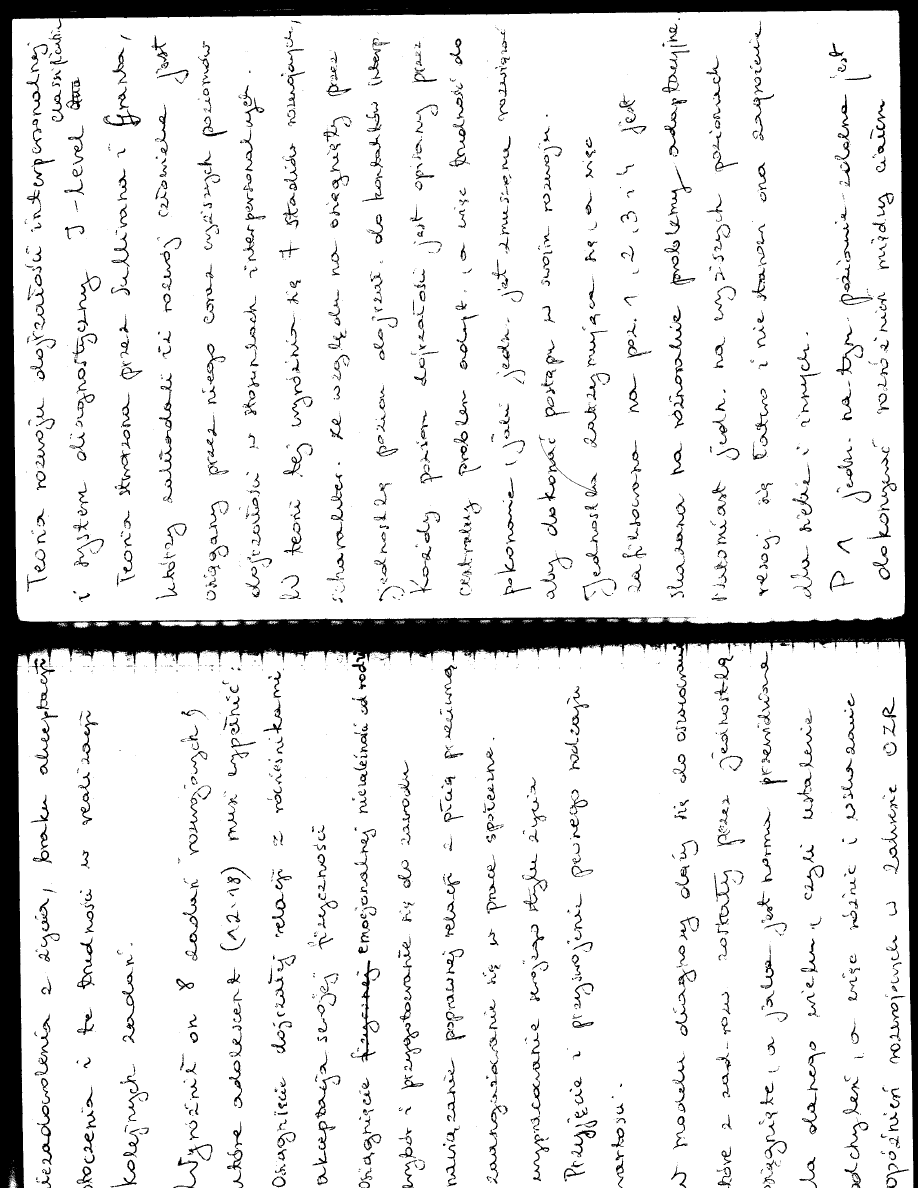 Teoria rozwoju dojrzałości interpersonalnej
i system diagnostyczny J-level classification
Teoria stworzona przez Sullivana i Granta,
którzy zakładali iż rozwój człowieka jest
osiągany przez niego coraz wyższych poziomów
dojrzałości w stosunkach interpersonalnych.
W teorii tej wyróżnia się 7 stadiów rozwojowych,
scharakter. ze względu na osiągnięty przez
jednostkę poziom dojrzał. do kontaktów interp.
Każdy poziom dojrzałości jest opisany przez
centralny problem adapt., a więc trudność do
pokonania, jaki jedn. jest zmuszona rozwiązać
aby dokonać postępu w swoim rozwoju.
Jednostka zatrzymująca się, a więc
zafiksowana na poz. 1, 2, 3 i 4 jest
skazana na różnorakie problemy adaptacyjne.
Natomiast jedn. na wyższych poziomach
resocj się łatwo i nie stanowi ona zagrożenia
dla siebie i innych.
P 1 jedn. na tym poziomie zdolna jest
dokonywać rozróżnień między ciałem
niezadowolenia z życia, braku akceptacji
otoczenia i te trudności w realizacji
kolejnych zadań.
Wyróżnił on 8 zadań rozwojowych,
które adolescent (12-18) musi wypełnić:
Osiągnięcie dojrzałej relacji z rówieśnikami
akceptacja swojej fizyczności
Osiągnięcie fizycznej emocjonalnej niezależności od rodz
wybór i przygotowanie się do zawodu
nawiązanie poprawnej relacji z płcią przeciwną
zaangażowanie się w prace społeczne.
wypracowanie swojego stylu życia
Przyjęcie i przyswojenie pewnego rodzaju
wartości.
W modelu diagnozy dąży się do oszacowania
które z zad. rozw zostały przez jednostkę
osiągnięte, a jaka jest norma przewidziana
dla danego wieku, czyli ustalenie
odchyleń, a więc różnic i wskazanie
opóźnień rozwojowych w zakresie OZR